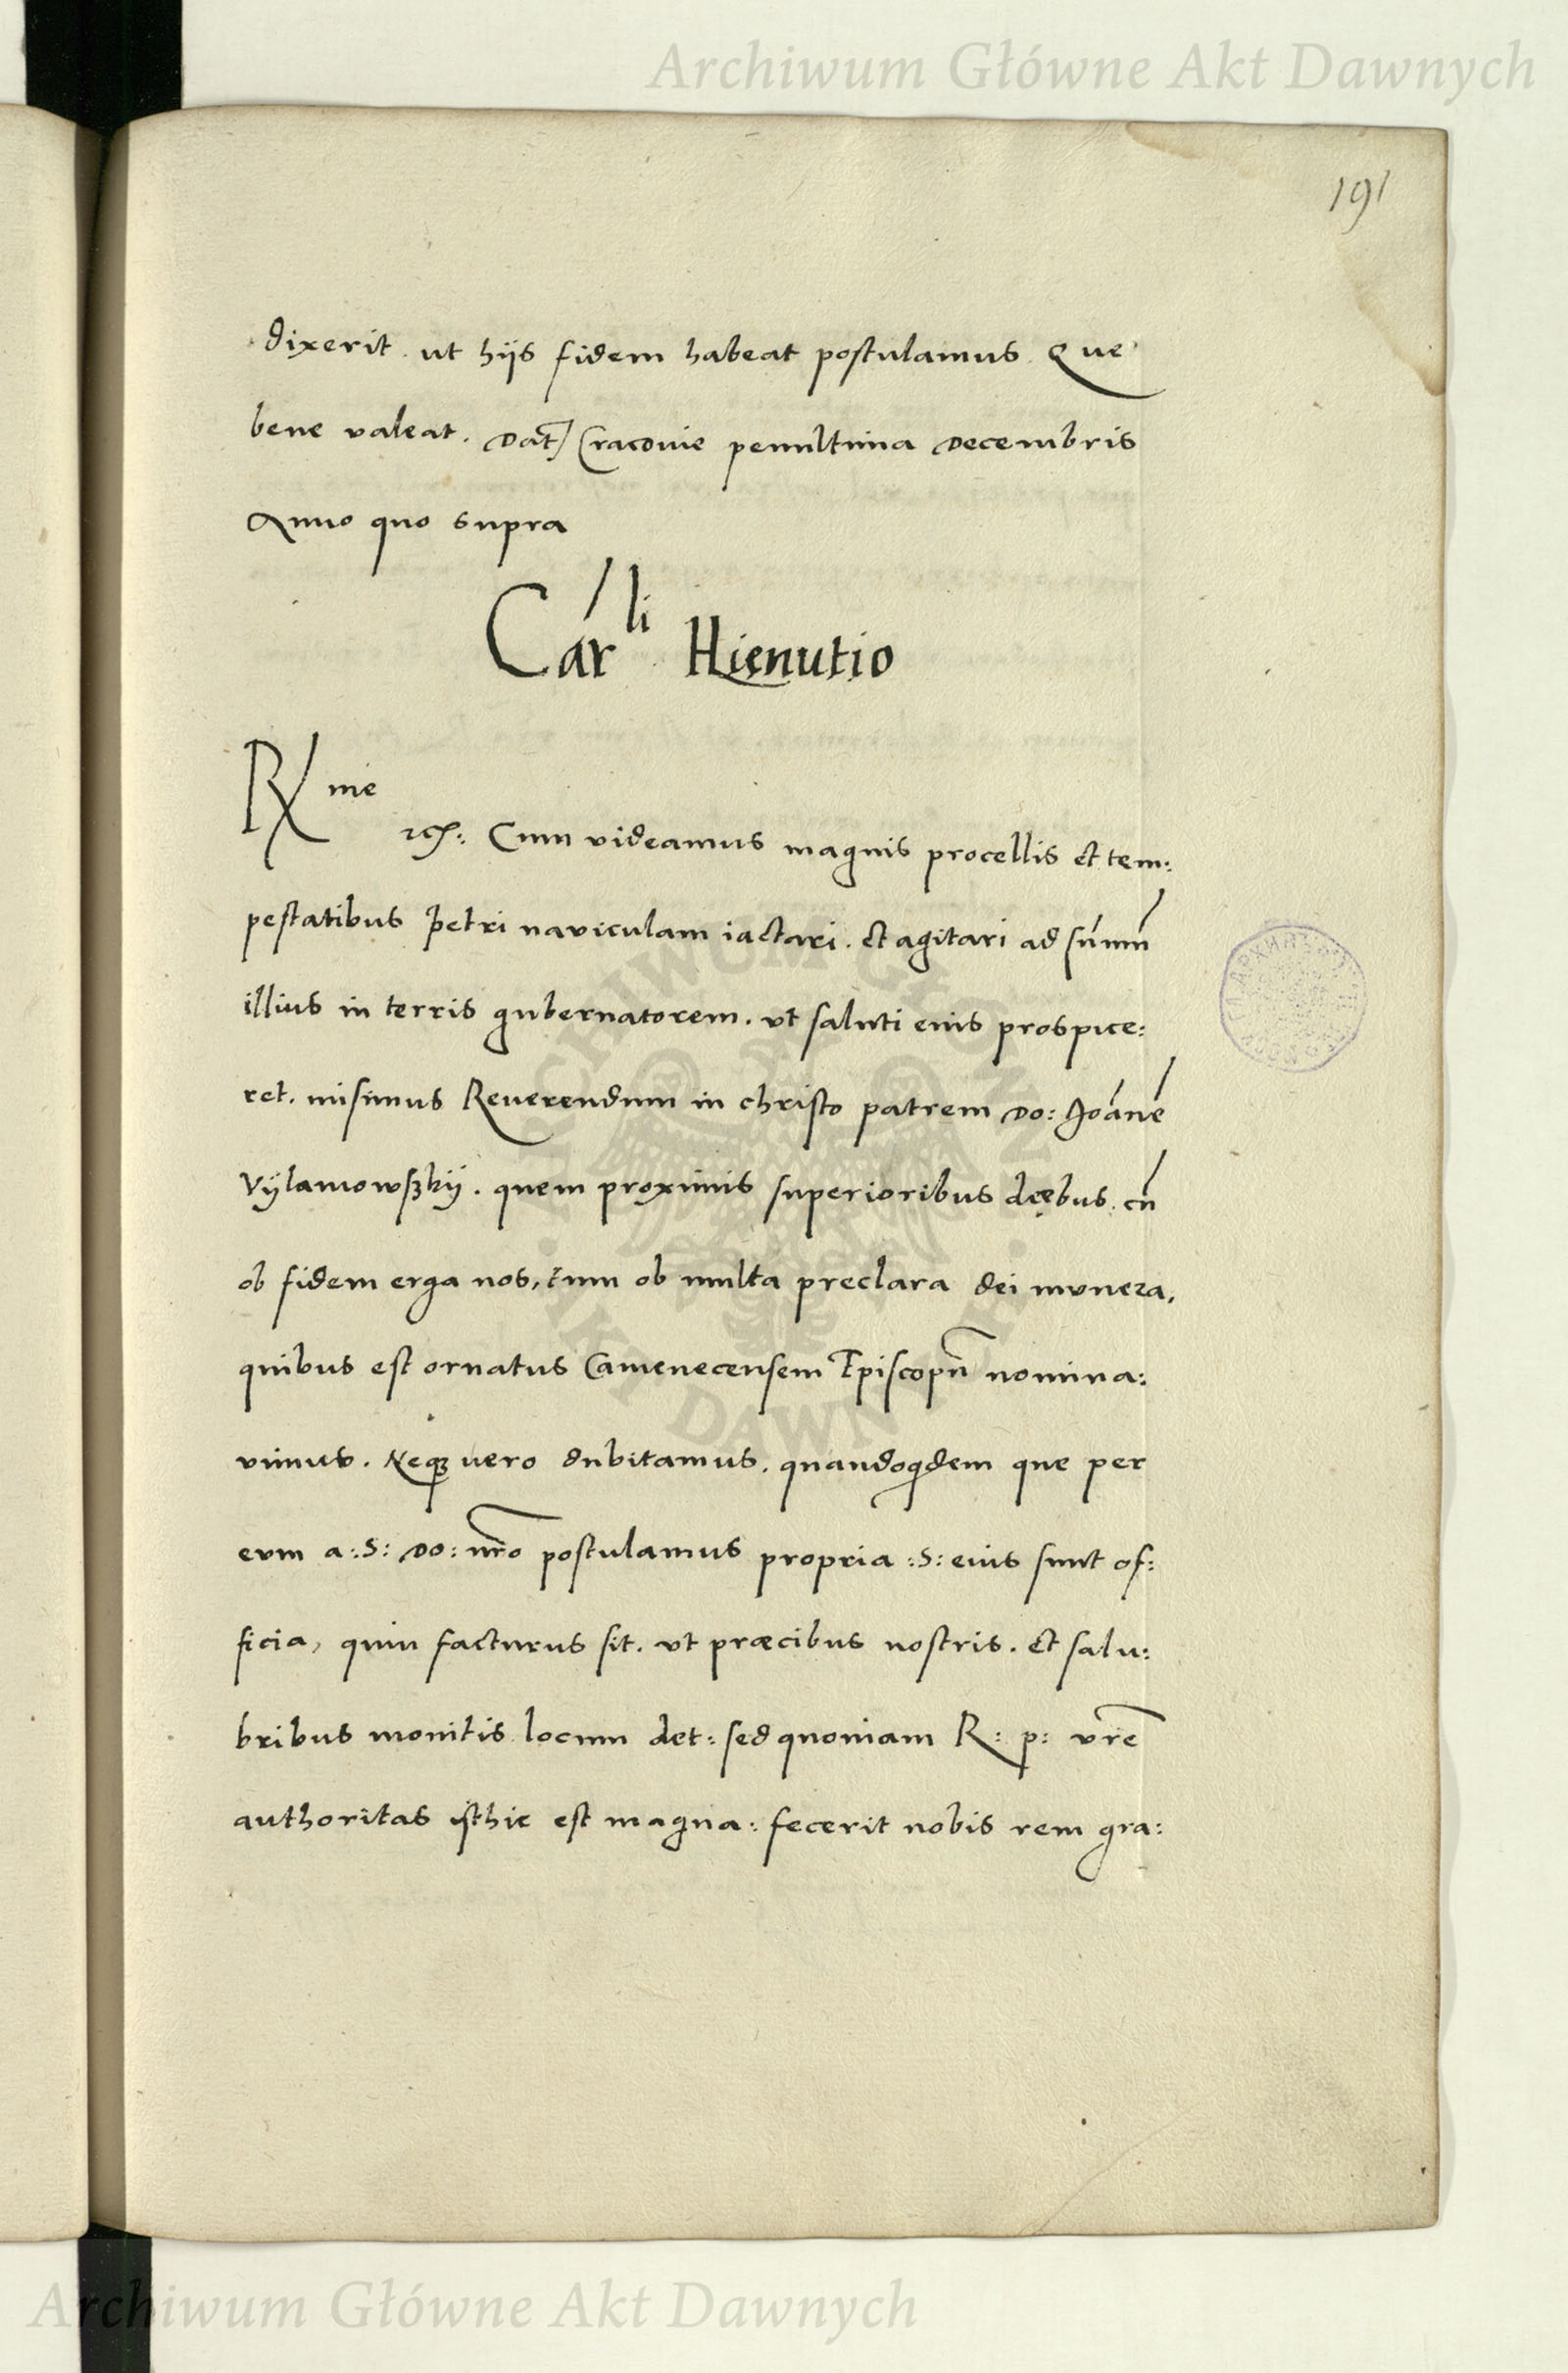 Archiwum Główne Akt Dawnych
191
dixerit. ut hijs fidem habeat postulamus. Que
bene valeat. Dat̃ Cracovie penultima Decembris
Anno quo supra
Car^li Hienutio
R^me
etc: Cum videamus magnis procellis et tem:
pestatibus Petri naviculam iactari. et agitari ad sũmũ
illius in terris gubernatorem. vt saluti eius prospice:
ret. misimus Reuerendum in christo patrem Do: Joãnẽ
Vÿlamowsʒkÿ. quem proximis superioribus diebus. cũ
ob fidem erga nos, tum ob multa preclara dei munera,
quibus est ornatus Camenecensem Episcopũ nomina:
vimus. Neqꝫ vero dubitamus. quandoq̇dem que per
eum a: S: Do: nr̃o postulamus propria :S: eius sunt of:
ficia, quin facturus sit. vt præcibus nostris. et salu:
bribus monitis locum det: sed quoniam R: p: vr̃e
authoritas isthic est magna: fecerit nobis rem gra:
ARCHIWUM GŁÓWNE AKT DAWNYCH
Archiwum Główne Akt Dawnych